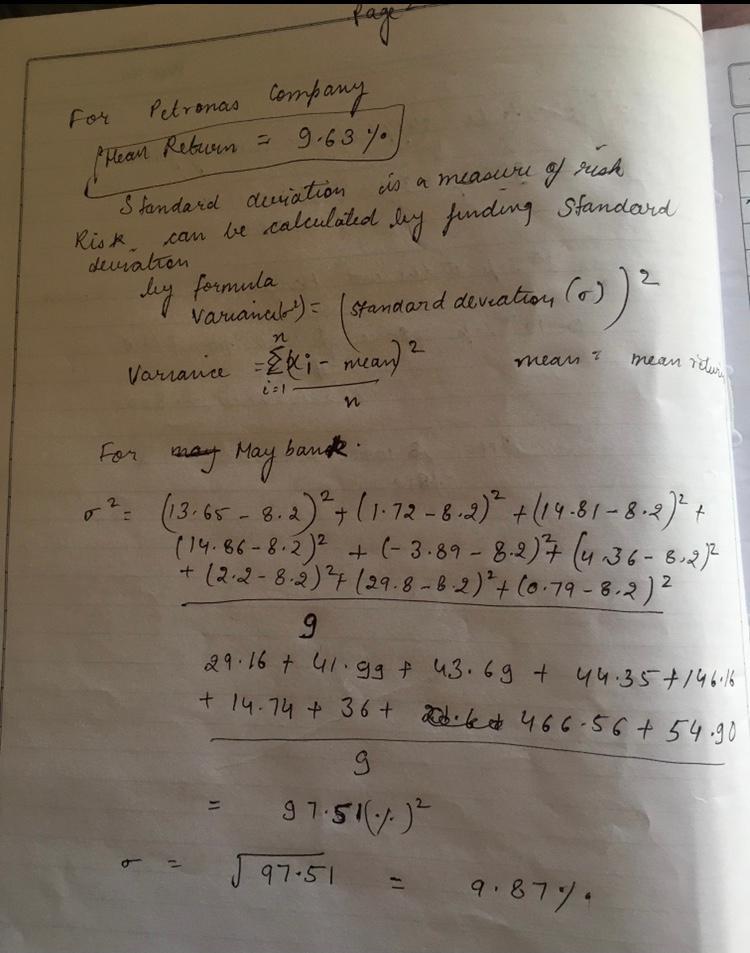 Page
For Petronas Company
Mean Return = 9.63 %
Standard deviation is a measure of risk
Risk can be calculated by finding Standard
deviation
by formula
Variance(σ²) = (standard deviation (σ))²
Variance = Σ(xi - mean)² / n   i=1   n   mean = mean return
For may May bank.
σ² = (13.65 - 8.2)² + (1.72 - 8.2)² + (14.81 - 8.2)² +
(14.86 - 8.2)² + (- 3.89 - 8.2)² + (4.36 - 8.2)²
+ (2.2 - 8.2)² + (29.8 - 8.2)² + (0.79 - 8.2)²
9
29.16 + 41.99 + 43.69 + 44.35 + 146.16
+ 14.74 + 36 + 466.56 + 54.90
9
= 97.51(%)²
σ = √97.51 = 9.87%.